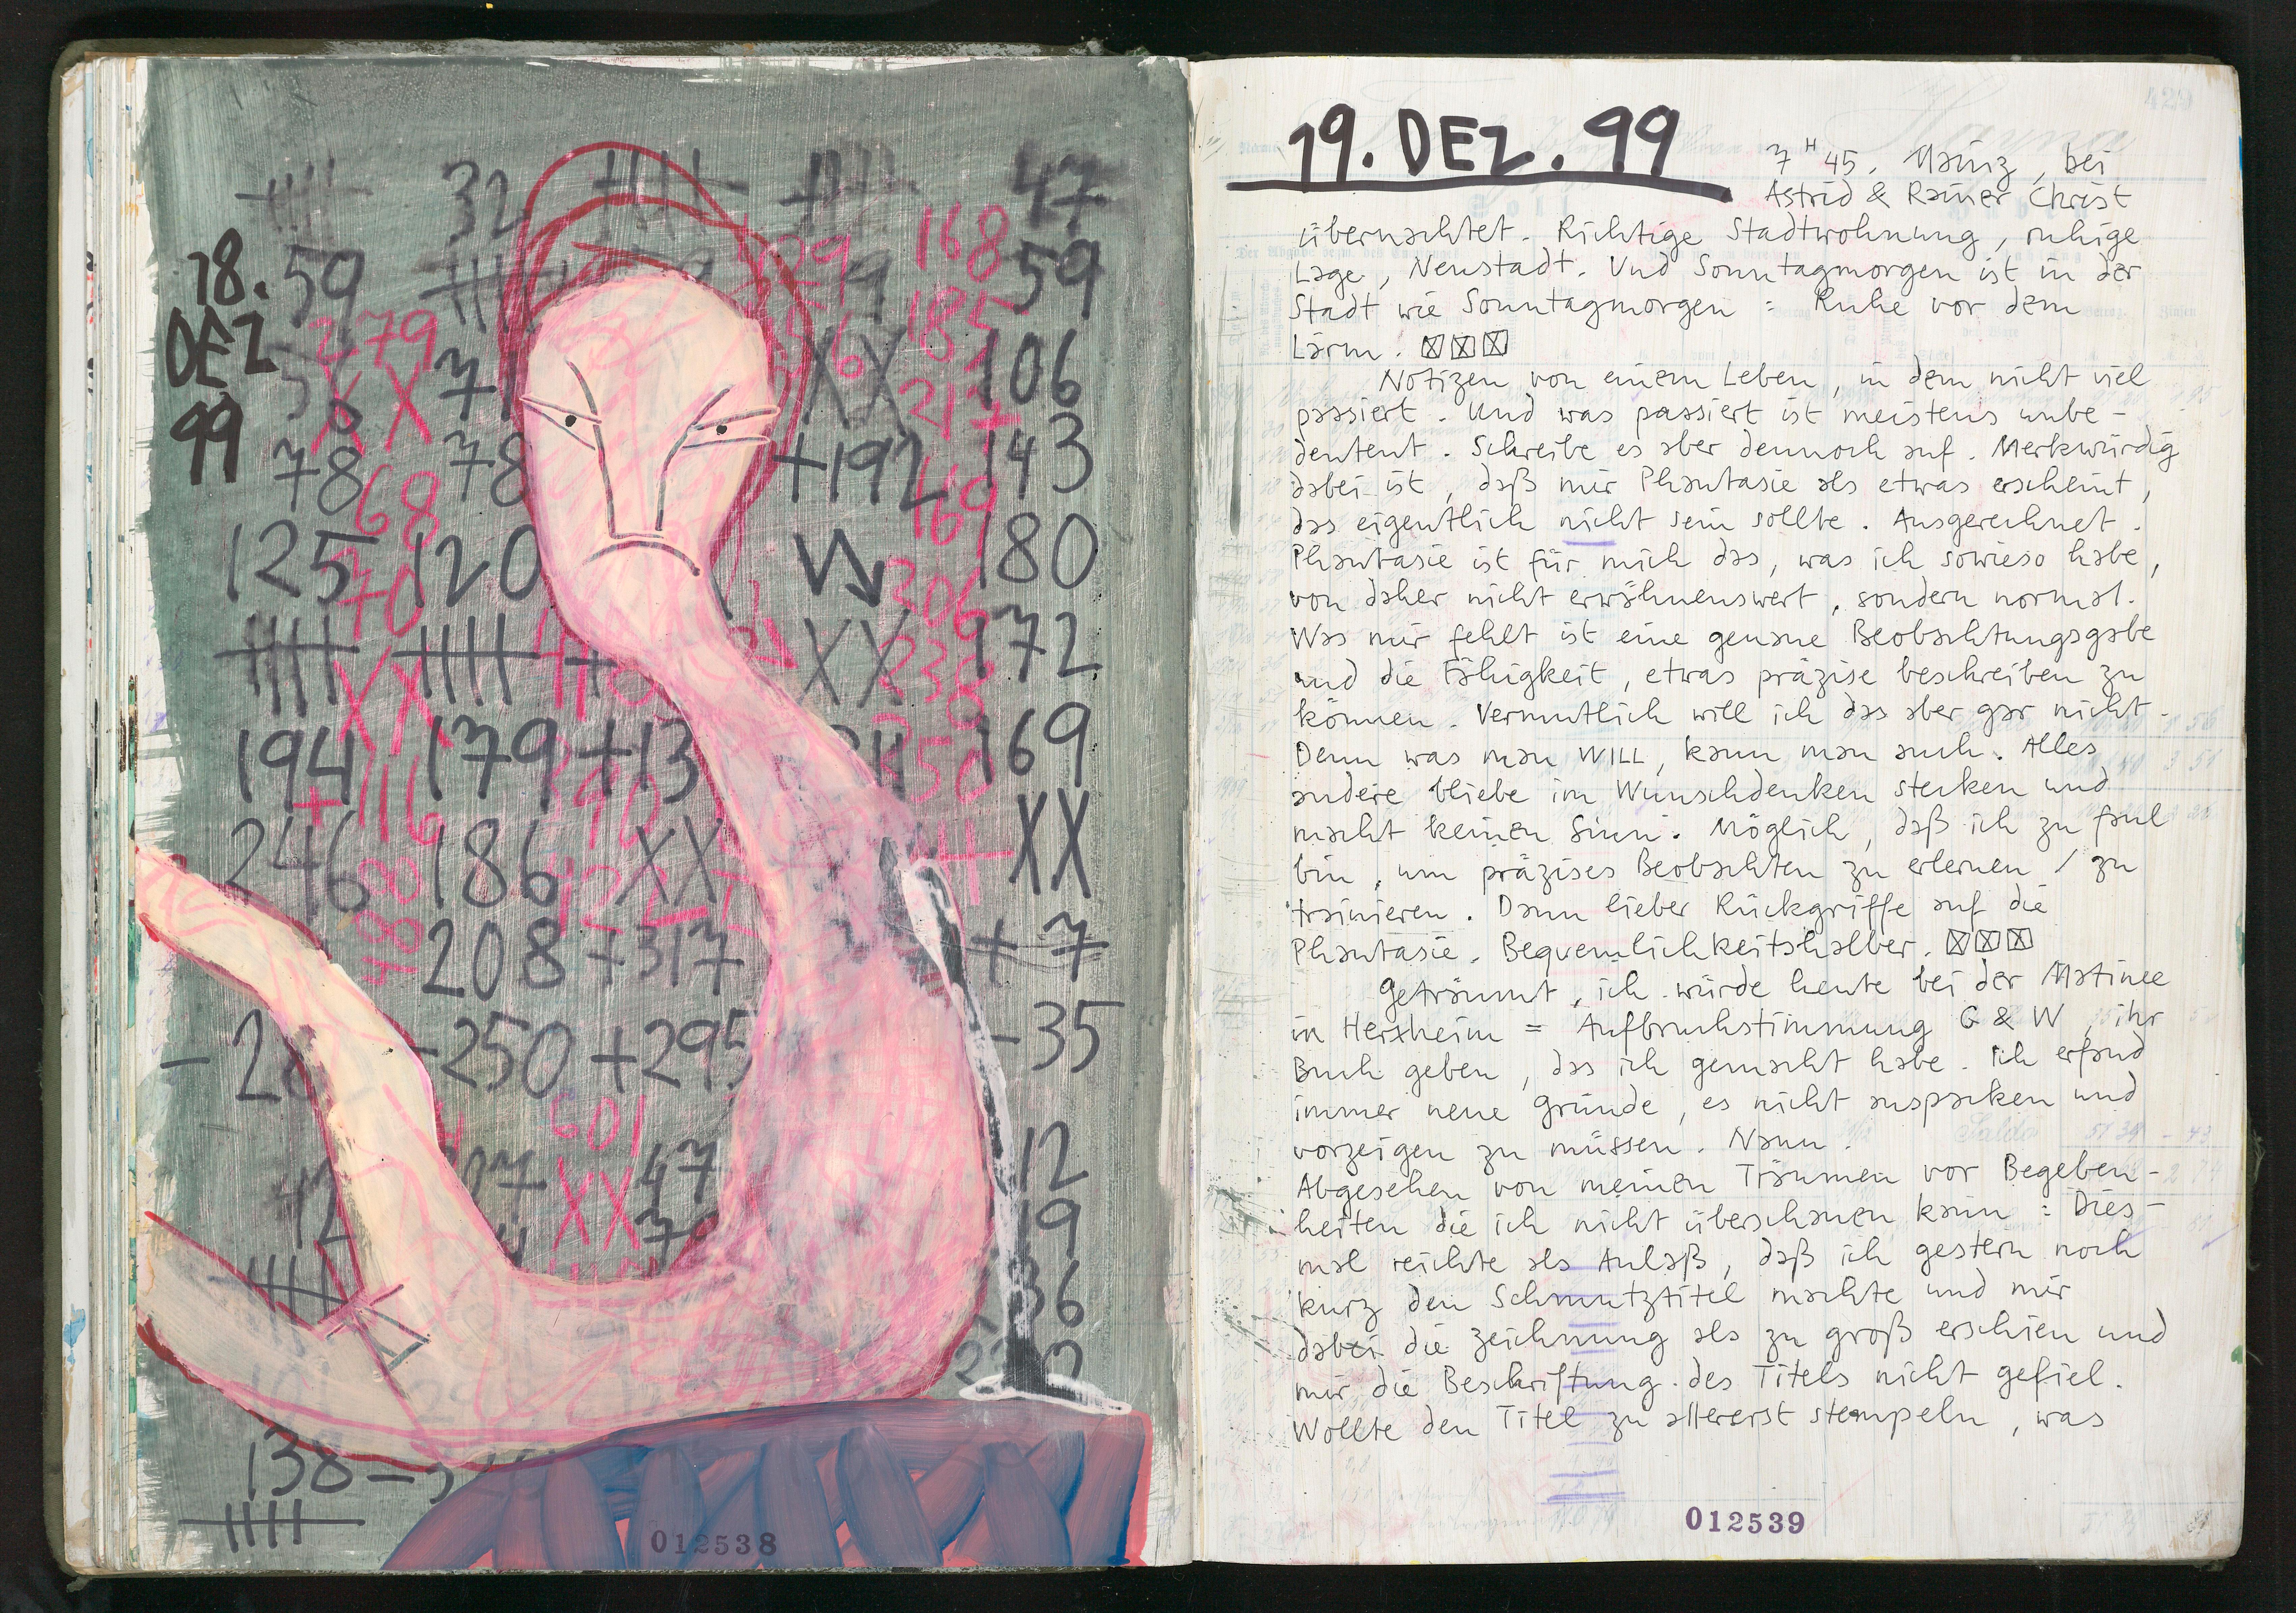 18.
DEZ
99
32
47
168
59
59
185
279
71
106
217
XX
XX
78
78
+192
143
68
169
125
120
180
70
306
XX
172
238
XX
194
179
+13
169
350
+116
390
XX
246
186
XX
488
208
+317
+7
-250
+295
-35
601
12
47
12
XX
19
36
138-
012538
19. DEZ. 99
7 H 45. Mainz, bei
Astrid & Rainer Christ
übernachtet. Richtige Stadtwohnung, ruhige
Lage, Neustadt. Und Sonntagmorgen ist in der
Stadt wie Sonntagmorgen : Ruhe vor dem
Lärm. ☒☒☒
Notizen von einem Leben, in dem nicht viel
passiert. Und was passiert ist meistens unbe-
deutent. Schreibe es aber dennoch auf. Merkwürdig
dabei ist, daß mir Phantasie als etwas erscheint,
das eigentlich nicht sein sollte. Ausgerechnet.
Phantasie ist für mich das, was ich sowieso habe,
von daher nicht erwähnenswert, sondern normal.
Was mir fehlt ist eine genaue Beobachtungsgabe
und die Fähigkeit, etwas präzise beschreiben zu
können. Vermutlich will ich das aber gar nicht.
Denn was man WILL, kann man auch. Alles
andere bliebe im Wunschdenken stecken und
macht keinen Sinn. Möglich, daß ich zu faul
bin, um präzises Beobachten zu erlernen / zu
trainieren. Dann lieber Rückgriffe auf die
Phantasie. Bequemlichkeitshalber. ☒☒☒
Geträumt, ich würde heute bei der Matinee
in Herxheim = Aufbruchstimmung G & W, ihr
Buch geben, das ich gemacht habe. Ich erfand
immer neue Gründe, es nicht auspacken und
vorzeigen zu müssen. Nann.
Abgesehen von meinen Träumen vor Begeben-
heiten die ich nicht überschauen kann : Dies-
mal reichte als Anlaß, daß ich gestern noch
kurz den Schmutztitel machte und mir
dabei die Zeichnung als zu groß erschien und
mir die Beschriftung des Titels nicht gefiel.
Wollte den Titel zu allererst stempeln, was
012539